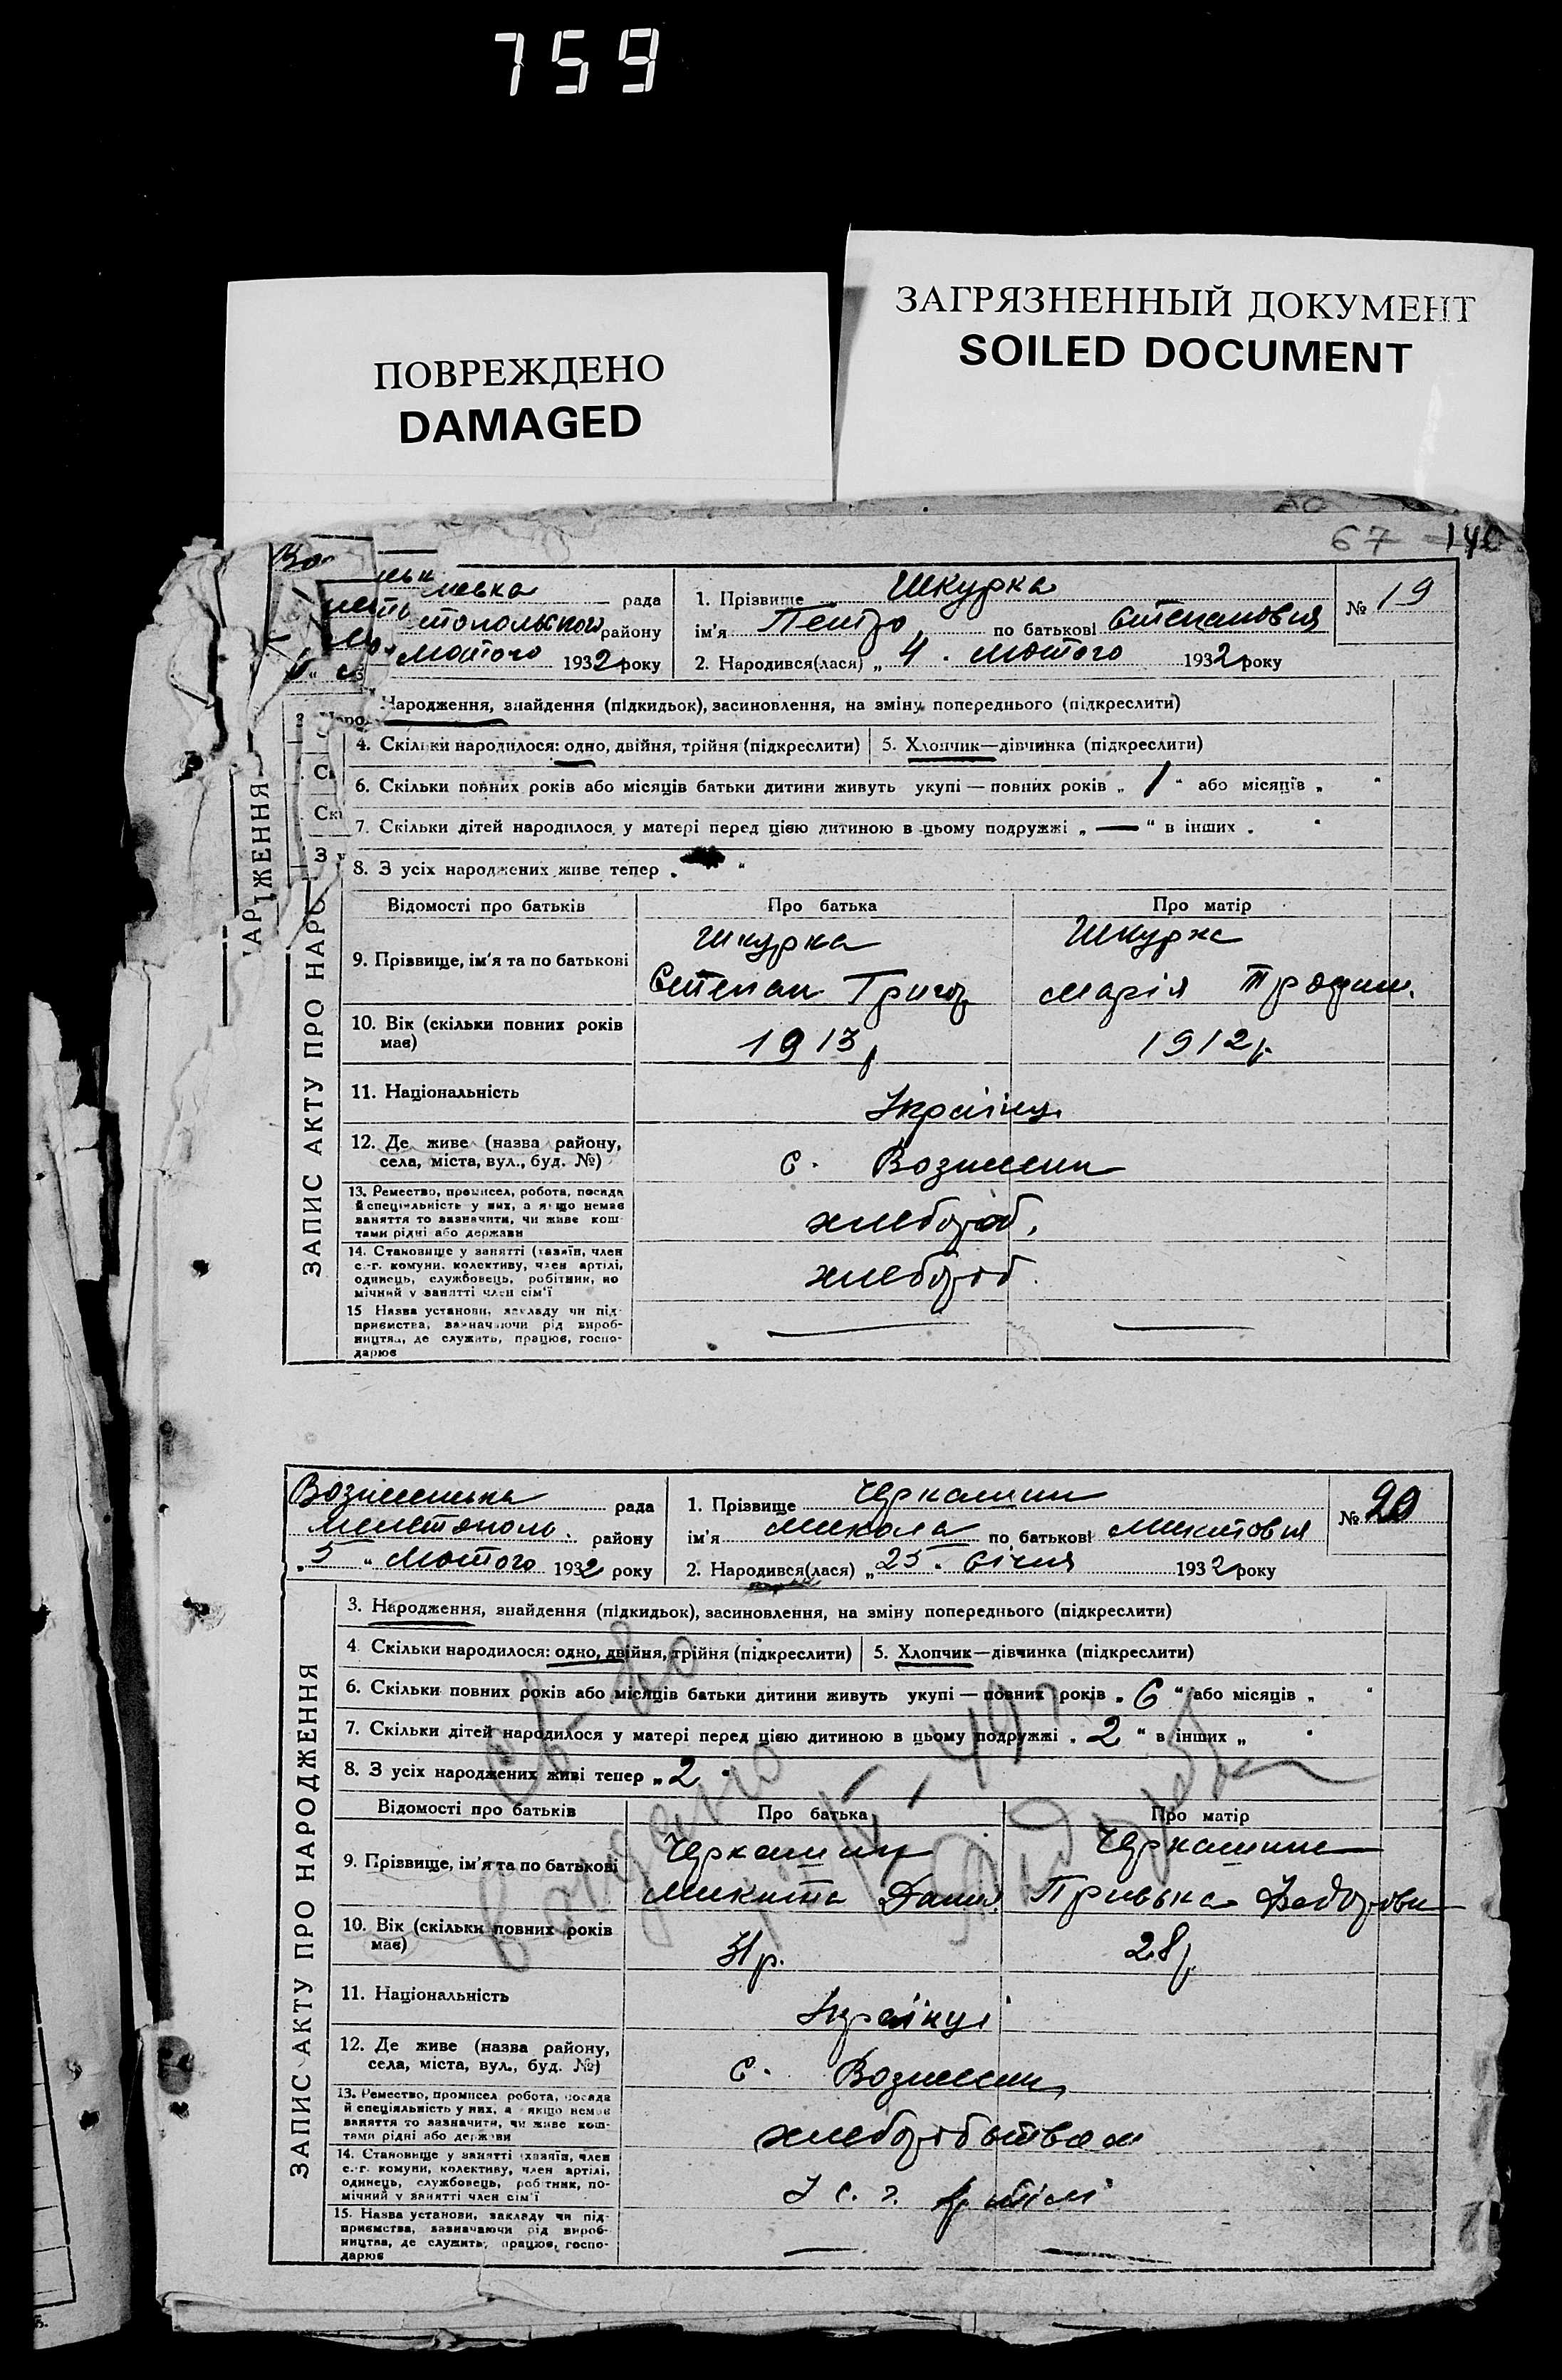 759
ПОВРЕЖДЕНО
DAMAGED
ЗАГРЯЗНЕННЫЙ ДОКУМЕНТ
SOILED DOCUMENT
67
рада
району
Лютого 1932 року
1. Прізвище Шкурка
ім'я Петро по батькові Степанович
2. Народився(лася) „4" Лютого 1932 року
№ 19
Народження, знайдення (підкидьок), засиновлення, на зміну попереднього (підкреслити)
4. Скільки народилося: одно, двійня, трійня (підкреслити)
5. Хлопчик—дівчинка (підкреслити)
6. Скільки повних років або місяців батьки дитини живуть укупі — повних років „1" або місяців „ "
7. Скільки дітей народилося у матері перед цією дитиною в цьому подружжі „—" в інших „ "
8. З усіх народжених живе тепер „ "
ЗАПИС АКТУ ПРО НАРО
ЖЕННЯ
Відомості про батьків
Про батька
Про матір
9. Прізвище, ім'я та по батькові
Шкурка
Степан Григор
Шкурка
Марія Трофим.
10. Вік (скільки повних років має)
1913р
1912р.
11. Національність
Українці
12. Де живе (назва району, села, міста, вул., буд. №)
с. Вознесен
13. Ремество, промисел, робота, посада й спеціяльність у них, а якщо немає заняття то зазначити, чи живе коштами рідні або держави
хлебороб.
14. Становище у занятті (хазяїн, член с.-г. комуни, колективу, член артілі, одинець, службовець, робітник, помічний у занятті член сім'ї
хлебороб.
15 Назва установи, закладу чи підприємства, зазначаючи рід виробництва, де служить, працює, господарює
Вознесенська рада
Мелітополь. району
„5" Лютого 1932 року
1. Прізвище Черкашин
ім'я Микола по батькові Микитович
2. Народився(лася) „25" Січня 1932 року
№ 20
ЗАПИС АКТУ ПРО НАРОДЖЕННЯ
3. Народження, знайдення (підкидьок), засиновлення, на зміну попереднього (підкреслити)
4 Скільки народилося: одно, двійня, трійня (підкреслити)
5. Хлопчик—дівчинка (підкреслити)
6. Скільки повних років або місяців батьки дитини живуть укупі — повних років „6" або місяців „ "
7. Скільки дітей народилося у матері перед цією дитиною в цьому подружжі „2" в інших „ "
8. З усіх народжених живі тепер „2"
Відомості про батьків
Про батька
Про матір
9. Прізвище, ім'я та по батькові
Черкашин
Микита Данил.
Черкашина
Федоровн
10. Вік (скільки повних років має)
31р.
28р.
11. Національність
Українці
12. Де живе (назва району, села, міста, вул., буд. №)
с. Вознесен
13. Ремество, промисел робота, посада й спеціяльність у них, а якщо немає заняття то зазначити, чи живе коштами рідні або держави
хлеборобством
14. Становище у занятті (хазяїн, член с.-г. комуни, колективу, член артілі, одинець, службовець, робітник, помічний у занятті член сім'ї
У с. г. артілі
15. Назва установи, закладу чи підприємства, зазначаючи рід виробництва, де служить, працює, господарює